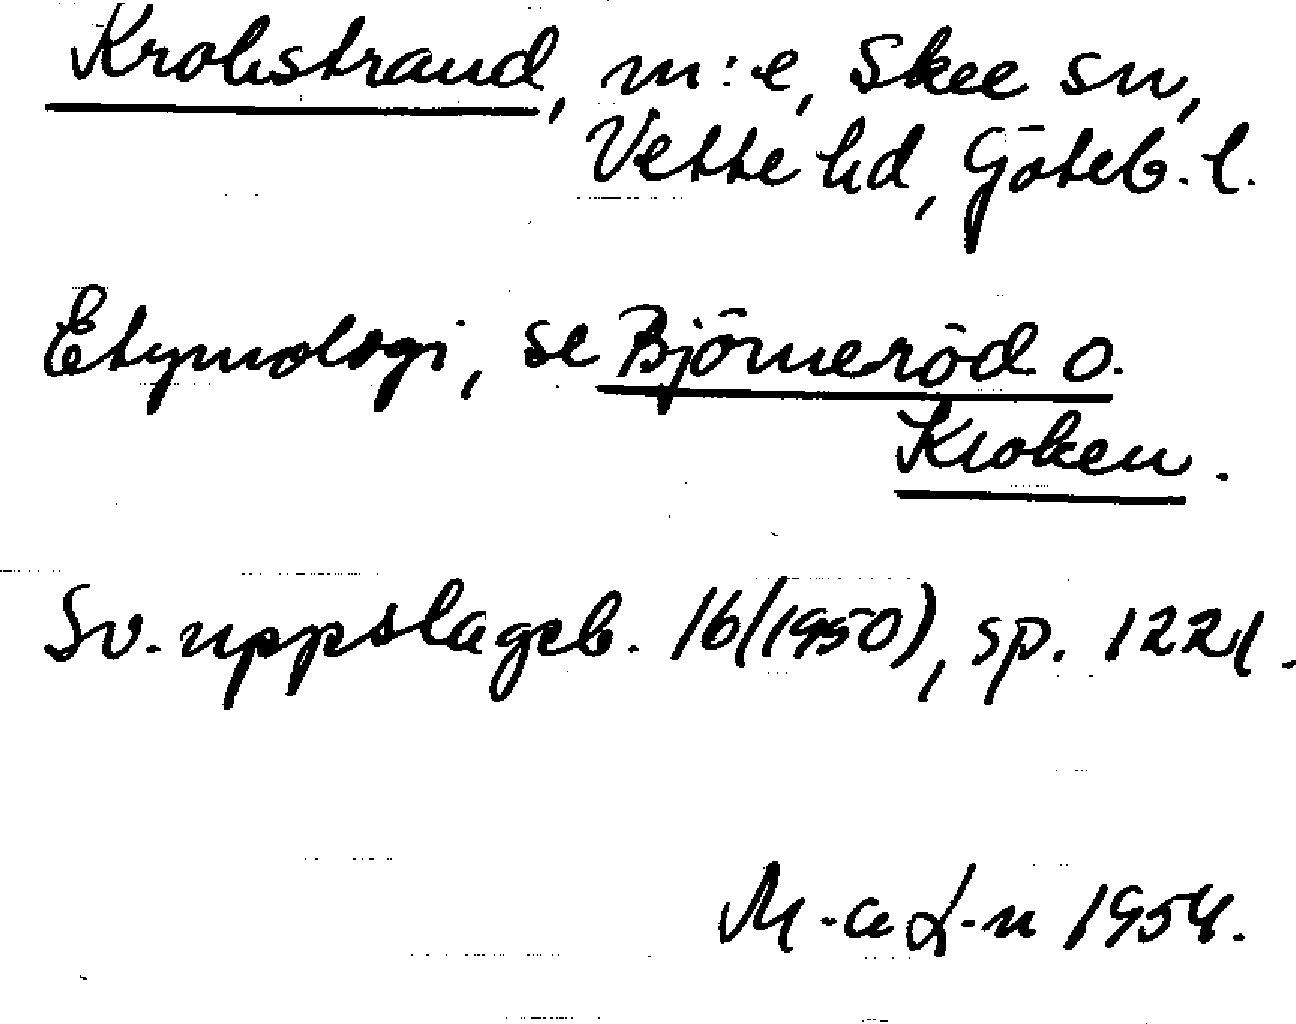 Krokstrand, m:e, Skee sn,
Vette hd, Göteb. l.
Etymologi, se Björneröd o.
Kroken.
Sv. uppslagsb. 16 (1950), sp. 1221.
M-a L-n 1954.